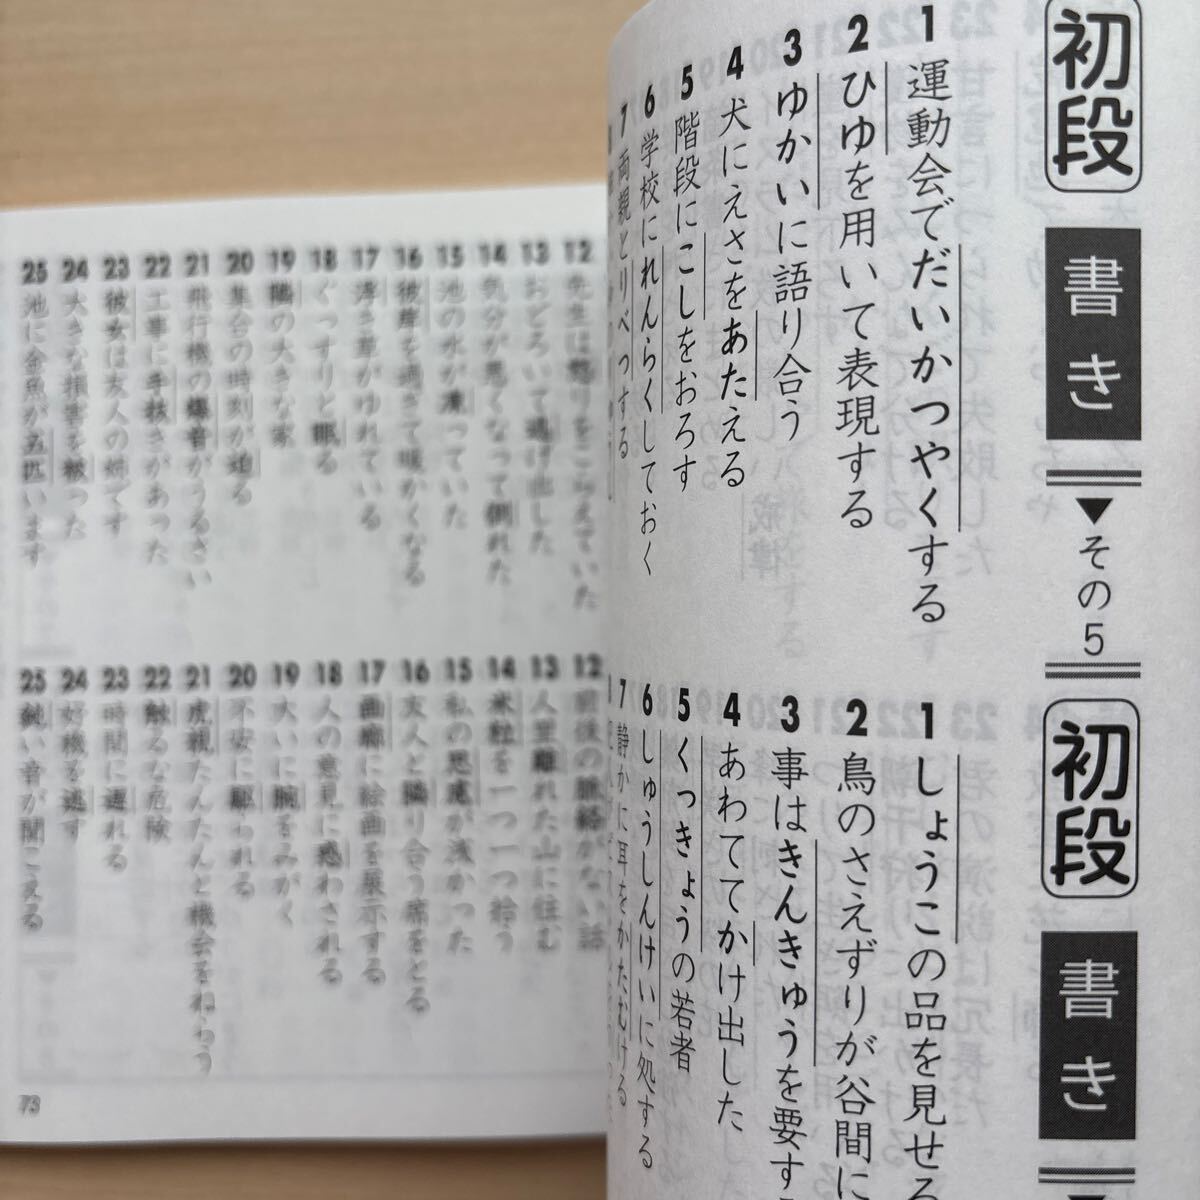 初段
書き
▼その5
1 運動会でだいかつやくする
2 ひゆを用いて表現する
3 ゆかいに語り合う
4 犬にえさをあたえる
5 階段にこしをおろす
6 学校にれんらくしておく
7 両親とりべつする
初段
書き
1 しょうこの品を見せる
2 鳥のさえずりが谷間に
3 事はきんきゅうを要す
4 あわててかけ出した
5 くっきょうの若者
6 しゅうしんけいに処する
7 静かに耳をかたむける
12 先生は怒りをこらえていた
13 おどろいて逃げ出した
14 気分が悪くなって倒れた
15 池の水が凍っていた
16 彼岸を過ぎて暖かくなる
17 浮き草がゆれている
18 ぐっすりと眠る
19 隣の大きな家
20 集合の時刻が迫る
21 飛行機の爆音がうるさい
22 工事に手抜きがあった
23 彼女は友人の姉です
24 大きな損害を被った
25 池に金魚が五匹います
12 前後の脈絡がない話
13 人里離れた山に住む
14 米粒を一つ一つ拾う
15 私の思慮が浅かった
16 友人と隣り合う席をとる
17 画廊に絵画を展示する
18 人の意見に惑わされる
19 大いに腕をみがく
20 不安に駆られる
21 虎視たんたんと機会をねらう
22 触るな危険
23 時間に遅れる
24 好機を逃す
25 鈍い音が聞こえる
73